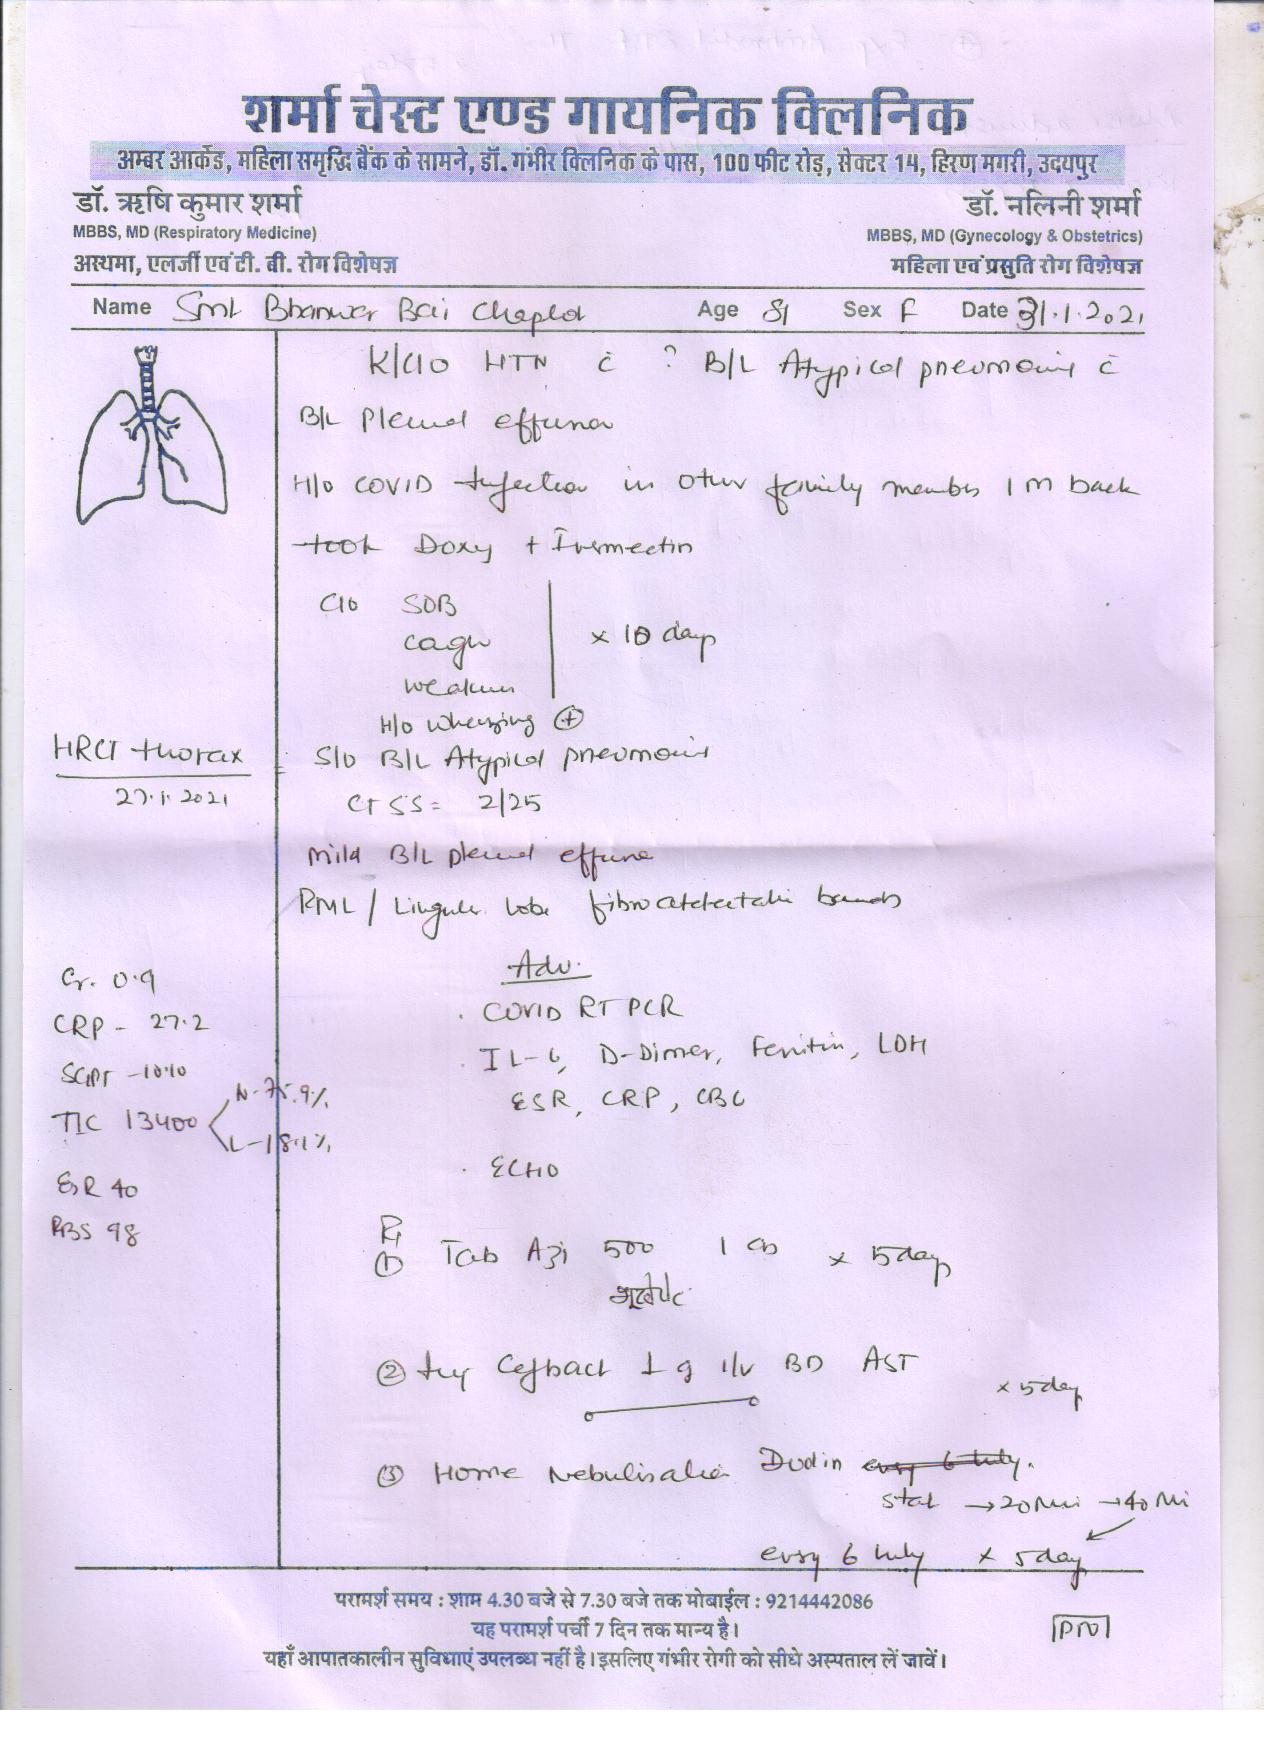 शर्मा चेस्ट एण्ड गायनिक क्लिनिक
अम्बर आर्केड, महिला समृद्धि बैंक के सामने, डॉ. गंभीर क्लिनिक के पास, 100 फीट रोड़, सेक्टर 14, हिरण मगरी, उदयपुर
डॉ. ऋषि कुमार शर्मा
MBBS, MD (Respiratory Medicine)
अस्थमा, एलर्जी एवं टी. बी. रोग विशेषज्ञ
डॉ. नलिनी शर्मा
MBBS, MD (Gynecology & Obstetrics)
महिला एवं प्रसुति रोग विशेषज्ञ
Name Smt Bhanwar Bai Chaplot Age 81 Sex F Date 31.1.2021
K/C/O HTN c̄ ? B/L Atypical pneumonia c̄
B/L Pleural effusion
H/o COVID Infection in other family member 1 m back
took Doxy + Ivermectin
C/o SOB
cough
weakness
x 10 days
H/o wheezing (+)
HRCT thorax
27.1.2021
S/o B/L Atypical pneumonia
CT SS = 2/25
mild B/L pleural effusion
RML / Lingular lobe fibroatelectatic bands
Cr. 0.9
CRP - 27.2
SGPT - 10.10
TLC 13400
N - 75.9%
L - 18.1%
ESR 40
RBS 98
Adv.
. COVID RT PCR
. IL-6, D-Dimer, Ferritin, LDH
ESR, CRP, CBC
. ECHO
Rx
① Tab Azi 500 1 OD x 5 day
② Inj Cefbact 1 g i/v BD AST
x 5 day
③ Home Nebulisation Duolin every 6 hrly.
stat → 20 Min → 40 Mi
every 6 hrly x 5 day
परामर्श समय : शाम 4.30 बजे से 7.30 बजे तक मोबाईल : 9214442086
यह परामर्श पर्ची 7 दिन तक मान्य है।
यहाँ आपातकालीन सुविधाएं उपलब्ध नहीं है। इसलिए गंभीर रोगी को सीधे अस्पताल लें जावें।